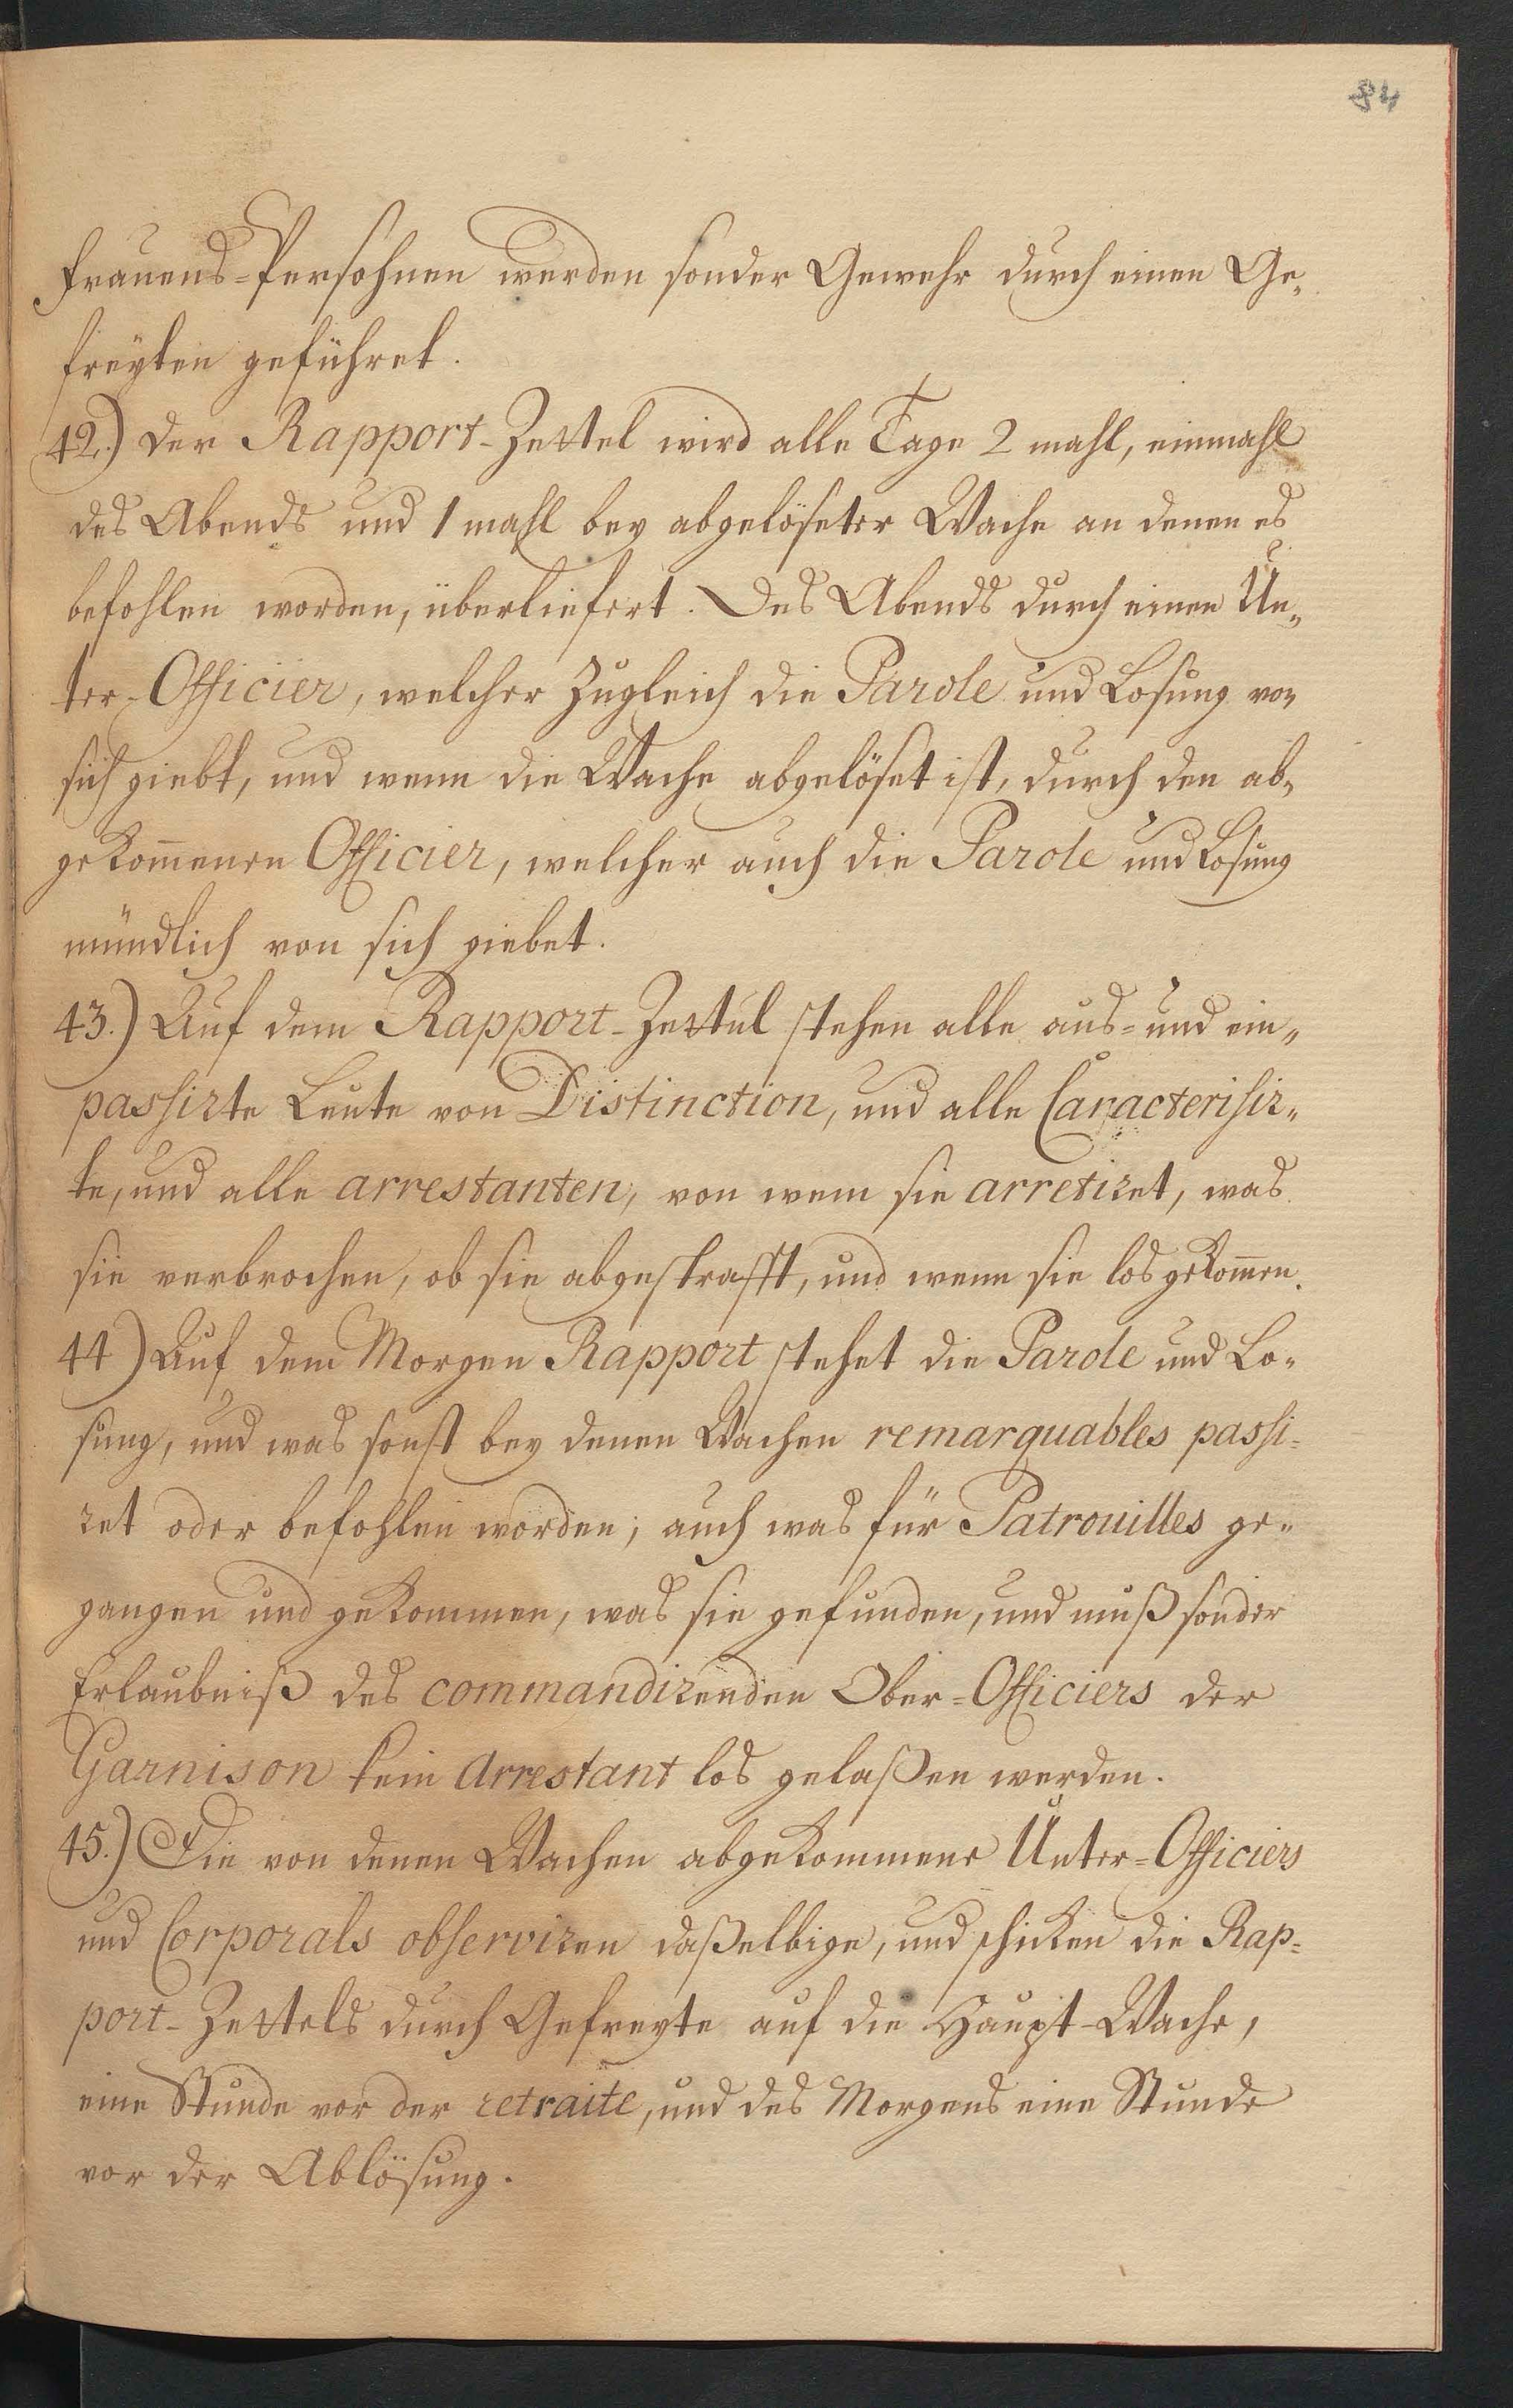 84
Frauens-Persohnen werden sonder Gewehr durch einen Ge„
freyten geführet.
42.) Der Rapport-Zettel wird alle Tage 2 mahl, einmahl
des Abends und 1 mahl bey abgelöseter Wache an denen es
befohlen worden, überliefert. Des Abends durch einen Un„
ter-Officier, welcher zugleich die Parole und Losung von
sich giebt, und wenn die Wache abgelöset ist, durch den ab„
gekom̄enen Officier, welcher auch die Parole und Losung
mündlich von sich giebet.
43.) Auf dem Rapport-Zettul stehen alle aus- und ein„
passirte Leute von Distinction, und alle Caracterisir„
te, und alle arrestanten, von wem sie arretiret, was
sie verbrochen, ob sie abgestrafft, und wenn sie los gekom̄en.
44) Auf dem Morgen Rapport stehet die Parole und Lo„
sung, und was sonst bey denen Wachen remarquables passi=
ret oder befohlen worden; auch was für Patrouilles ge„
gangen und gekommen, was sie gefunden, und muß sonder
Erlaubniß des commandirenden Ober-Officiers der
Garnison kein Arrestant los gelaßen werden.
45.) Die von denen Wachen abgekommene Unter-Officiers
und Corporals observiren daßelbige, und schicken die Rap=
port-Zettels durch Gefreyte auf die Haupt-Wache,
eine Stunde vor der retraite, und des Morgens eine Stunde
vor der Ablösung.